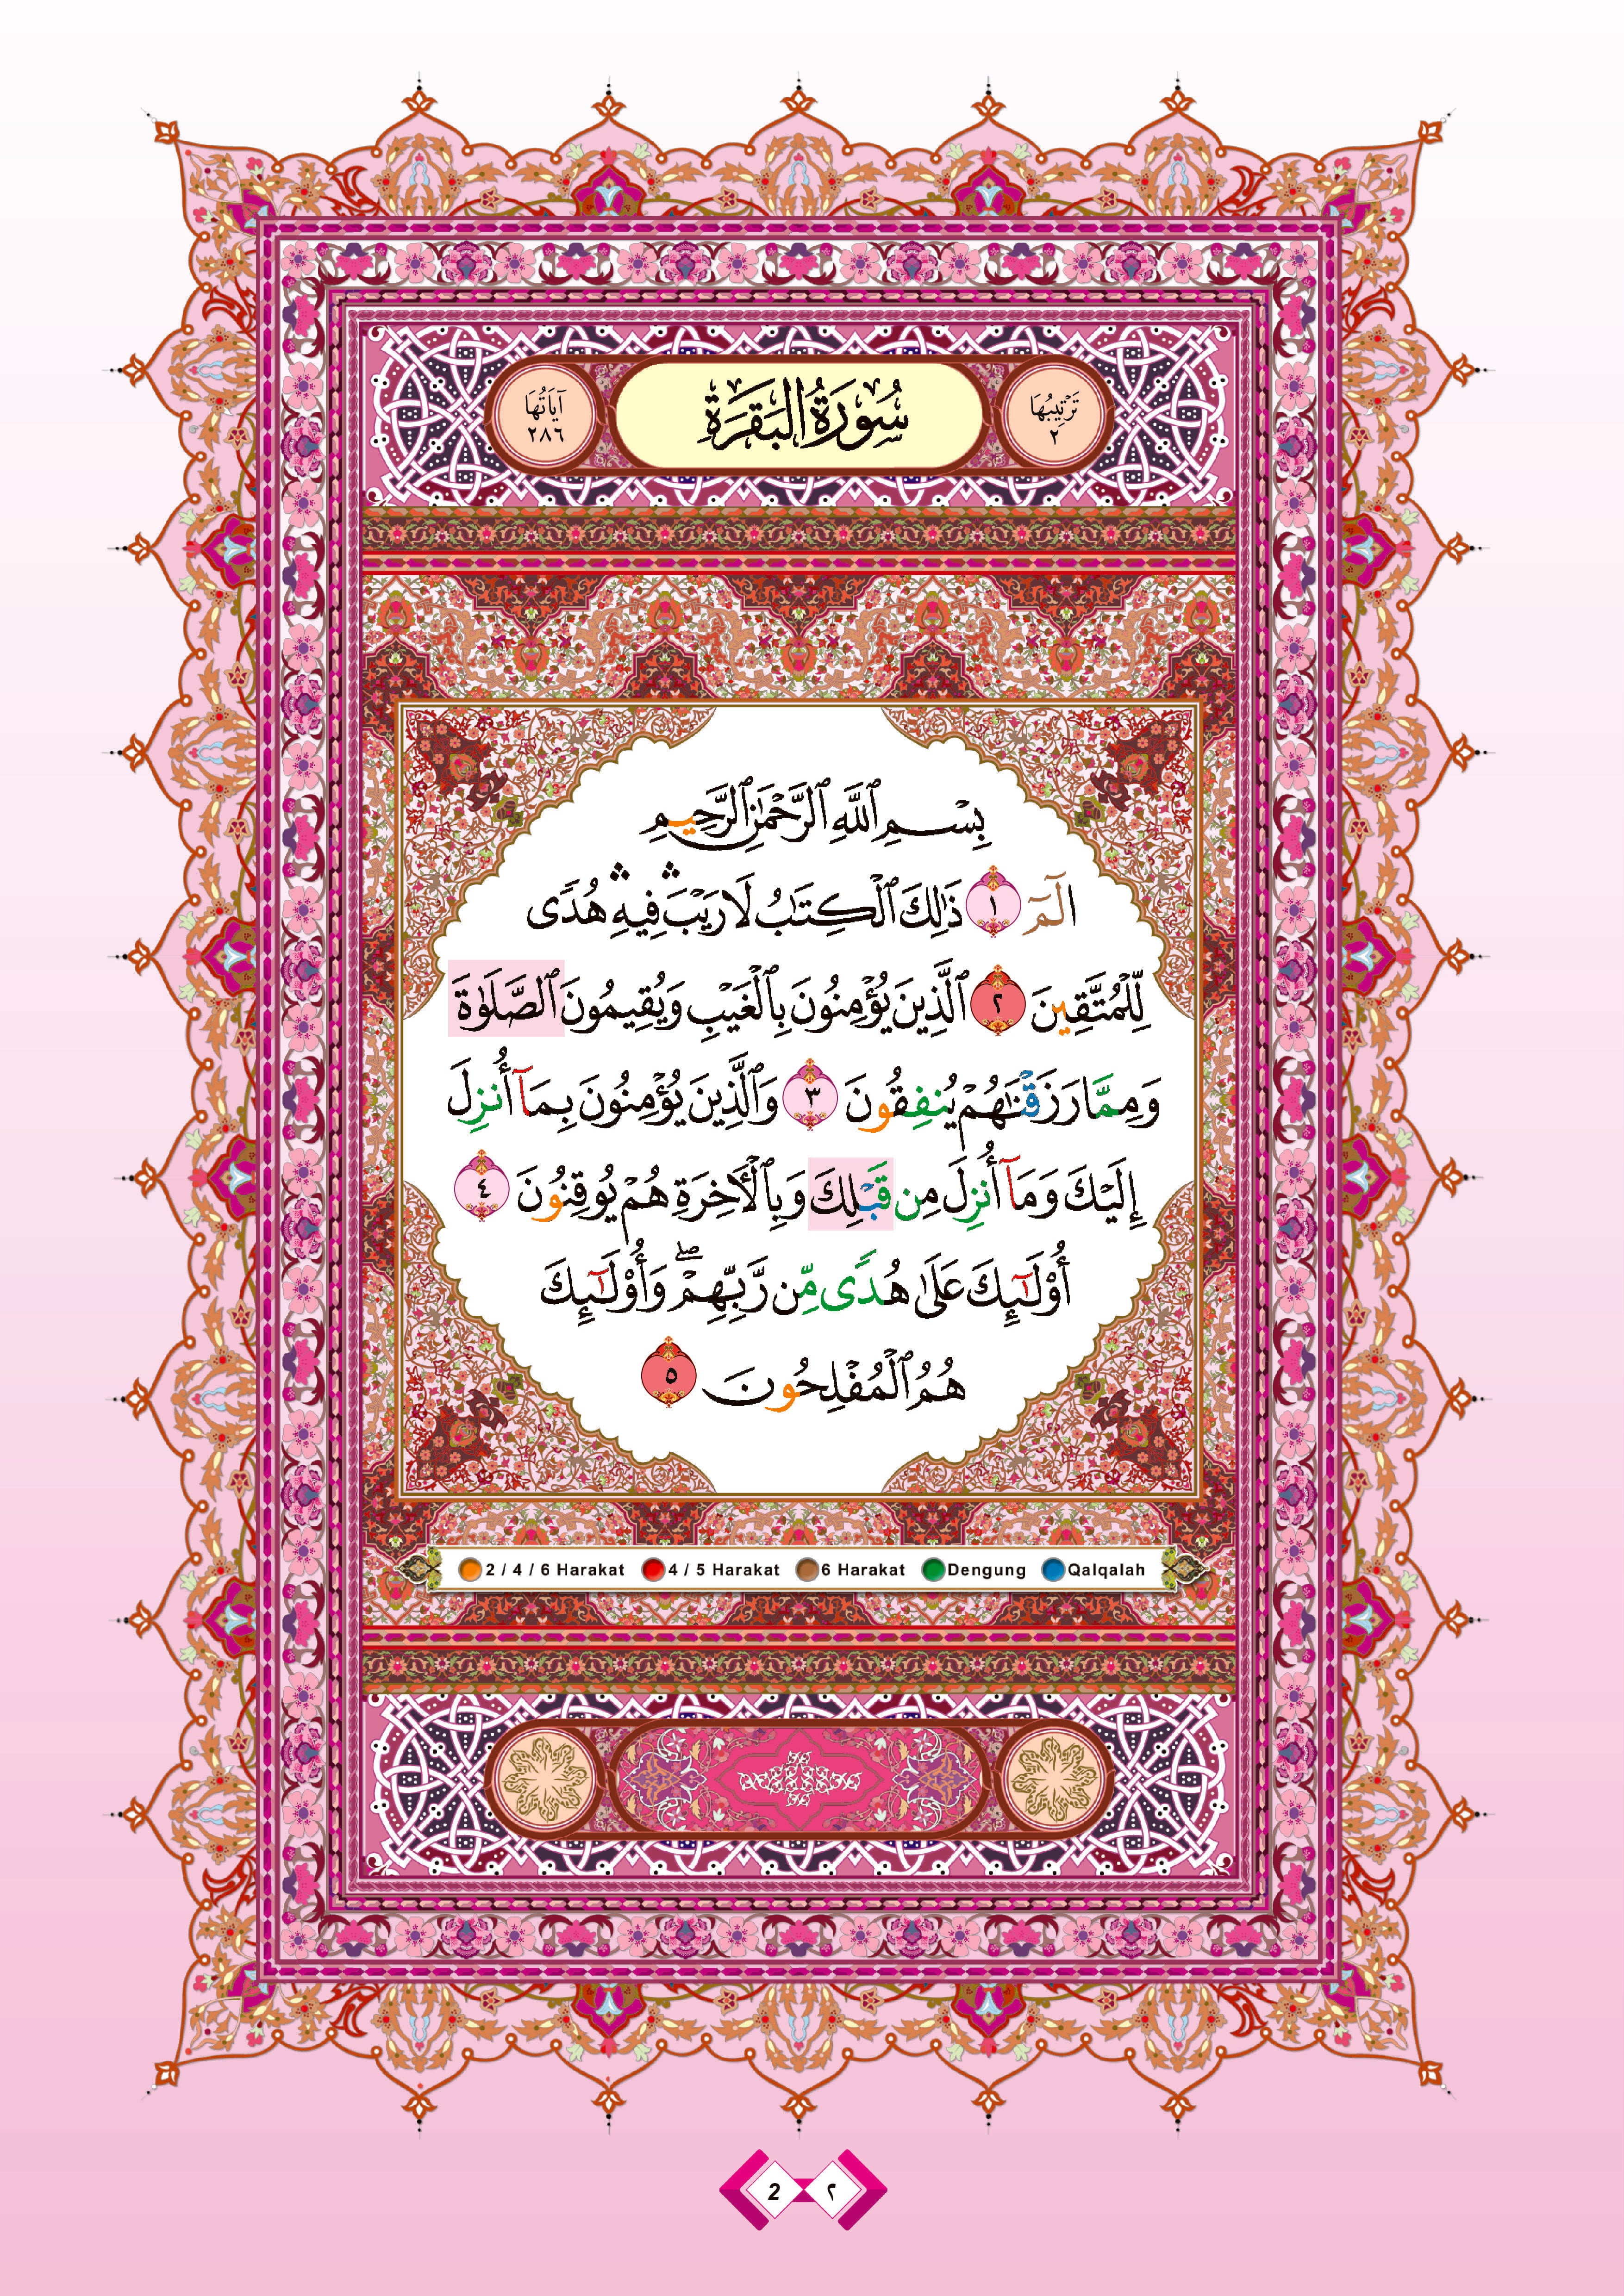 تَرْتِيبُهَا ٢
سُورَةُ الْبَقَرَةِ
آيَاتُهَا ٢٨٦
بِسْمِ ٱللَّهِ ٱلرَّحْمَٰنِ ٱلرَّحِيمِ
الٓمٓ ١ ذَٰلِكَ ٱلْكِتَٰبُ لَا رَيْبَ ۛ فِيهِ ۛ هُدًى
لِّلْمُتَّقِينَ ٢ ٱلَّذِينَ يُؤْمِنُونَ بِٱلْغَيْبِ وَيُقِيمُونَ ٱلصَّلَوٰةَ
وَمِمَّا رَزَقْنَٰهُمْ يُنفِقُونَ ٣ وَٱلَّذِينَ يُؤْمِنُونَ بِمَآ أُنزِلَ
إِلَيْكَ وَمَآ أُنزِلَ مِن قَبْلِكَ وَبِٱلْأَخِرَةِ هُمْ يُوقِنُونَ ٤
أُو۟لَٰٓئِكَ عَلَىٰ هُدًى مِّن رَّبِّهِمْ ۖ وَأُو۟لَٰٓئِكَ
هُمُ ٱلْمُفْلِحُونَ ٥
2 / 4 / 6 Harakat 4 / 5 Harakat 6 Harakat Dengung Qalqalah
2 ٢